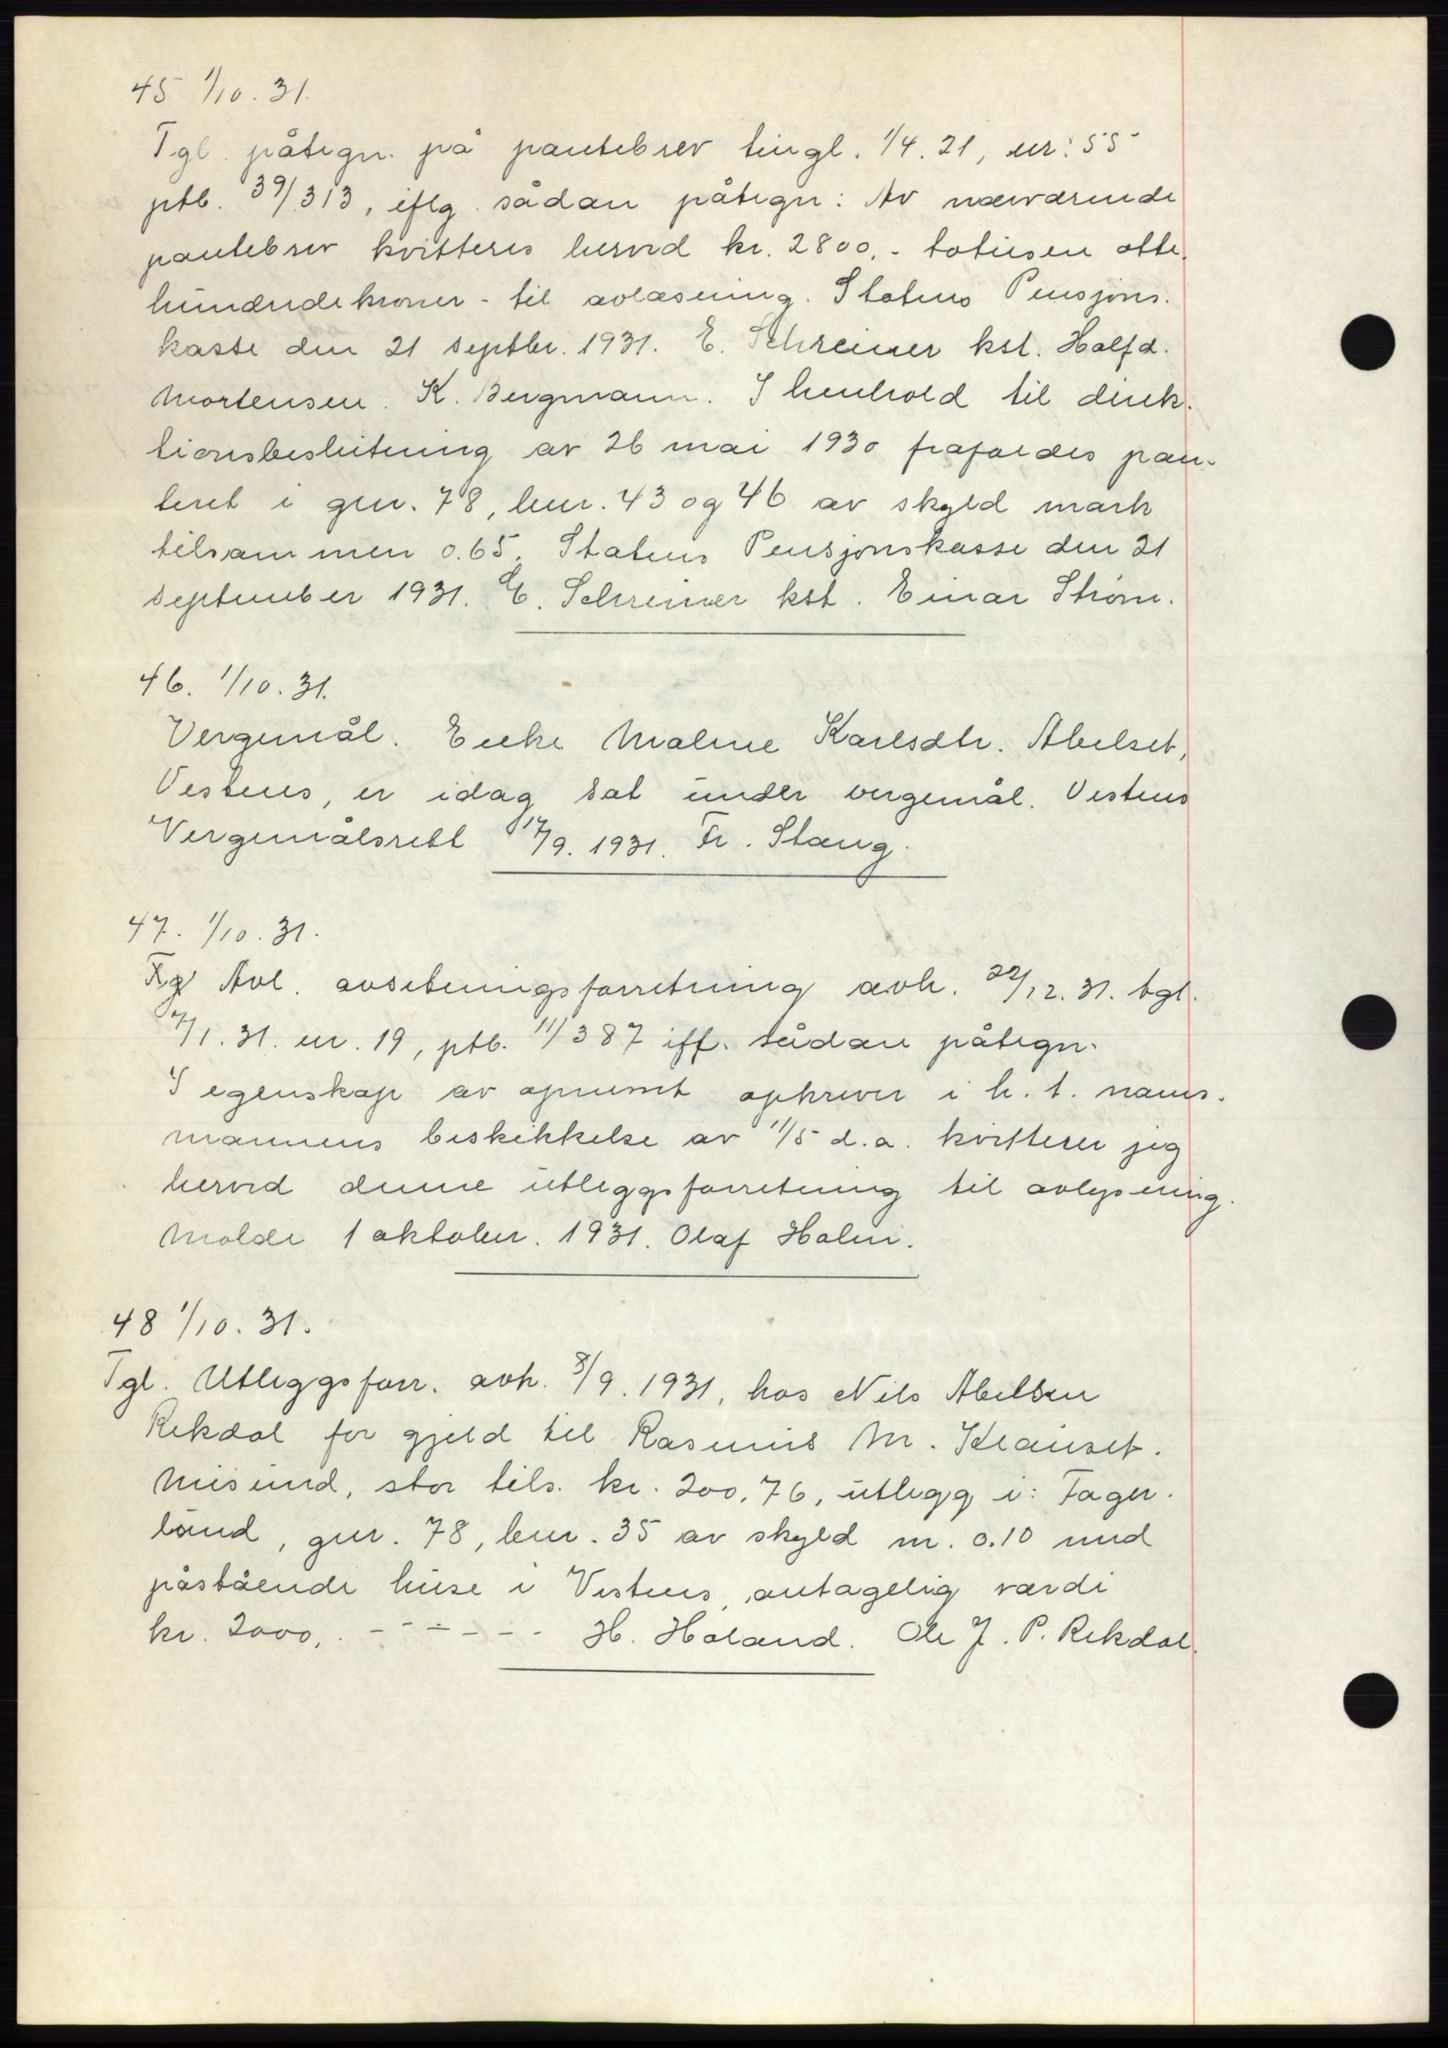 45 1/10. 31.
Tgl. påtegn. på pantebrev tingl. 1/4. 21, nr: 55
ptb. 39/313, iflg. sådan påtegn: Av nærværende
pantebrev kvitteres herved kr. 2800,- totusen otte
hundrede kroner - til avlæsning. Statens Pensjons-
kasse den 21 septbr. 1931. E. Schreiner kst. Halfd.
Mortensen. K. Bergmann. I henhold til direk-
tionsbeslutning av 26 mai 1930 frafaldes pan-
teret i gnr. 78, bnr. 43 og 46 av skyld mark
tilsammen 0.65. Statens Pensjonskasse den 21
september 1931. E. Schreiner kst. Einar Strøm.
46. 1/10. 31.
Vergemål. Enke Malene Karlsdtr. Abelset,
Vestnes, er idag sat under vergemål. Vestnes
Vergemålsrett 17/9. 1931. Fr. Stang.
47. 1/10. 31.
Avl. avsetningsforretning avh. 22/12. 31. tgl.
7/1. 31. nr. 19, ptb. 11/387 iff. sådan påtegn.
I egenskap av opnevnt ophever i h. t. nams-
mannens beskikkelse av 11/5 d.a. kvitterer jeg
herved denne utleggsforretning til avlysning.
Molde 1 oktober. 1931. Olaf Holm.
48 1/10. 31.
Tgl. Utleggsforr. avh. 8/9. 1931, hos Nils Abelsen
Rekdal for gjeld til Rasmus M. Klauset.
Misund, stor tils. kr. 200,76, utlegg i: Fager-
land, gnr. 78, bnr. 35 av skyld m. 0.10 med
påstående huse i Vestnes, antagelig værdi
kr. 2000,. - - - - - - H. Holand. Ole J. P. Rekdal.